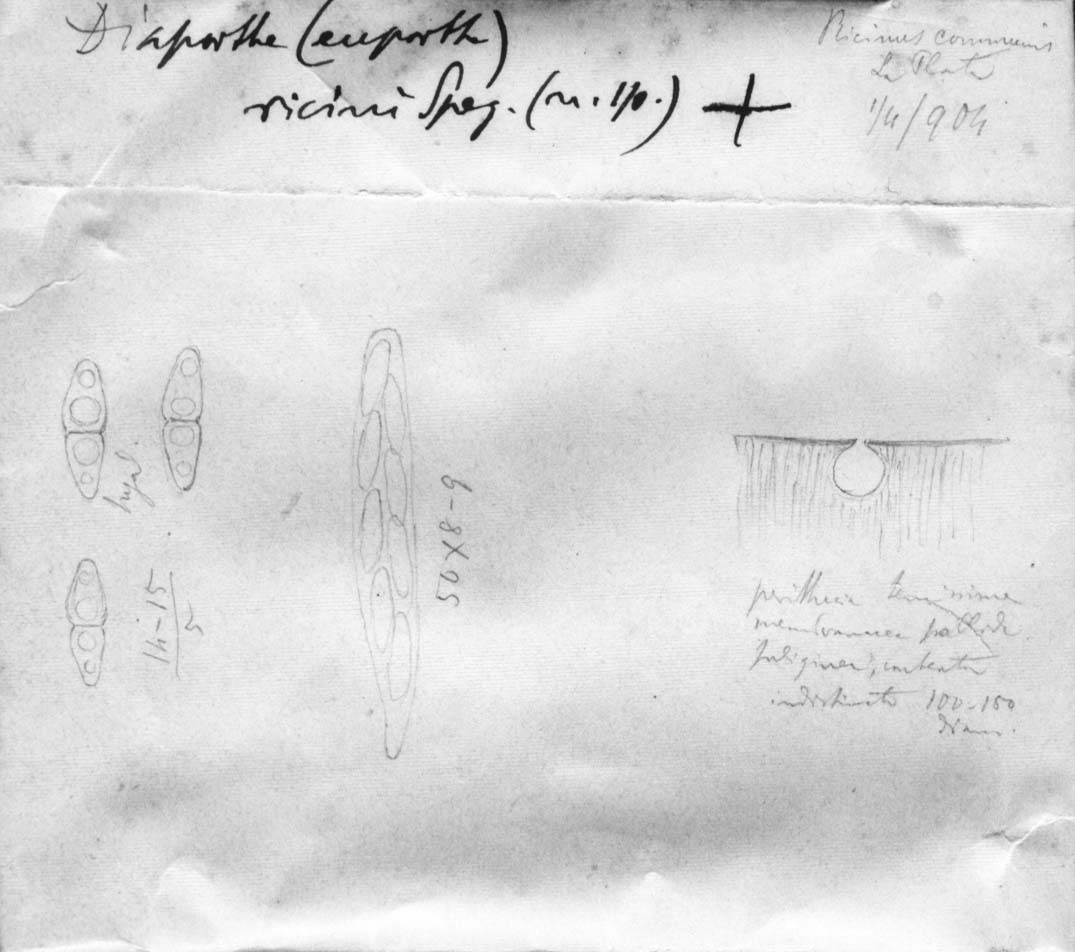 Diaporthe (euporthe)
ricini Speg. (n. sp.) +
Ricinus communis
La Plata
1/4/904
hyal.
14-15
5
50X8-9
perithecia tenuissime
membranacea pallide
fuliginea, contextu
indistincto 100-150
diam.